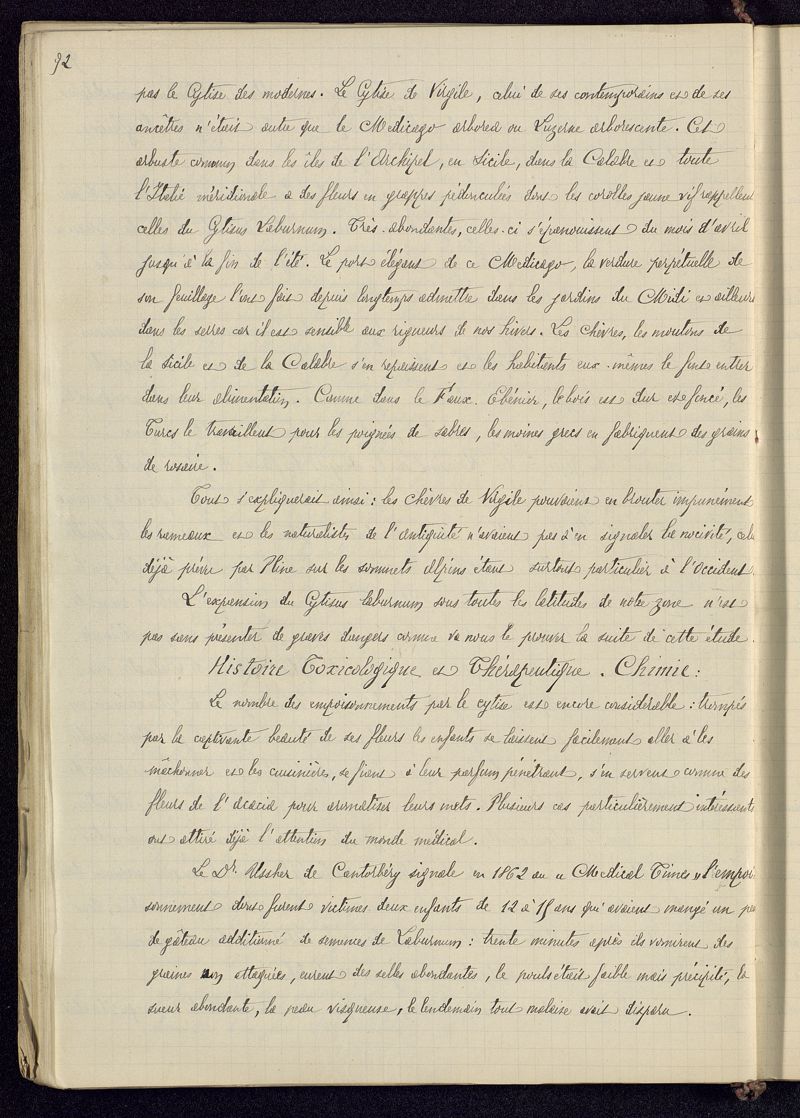 92
pas le Cytise des modernes. Le Cytise de Virgile, celui de ses contemporains et de ses
ancêtres n'était autre que le Medicago arborea ou Luzerne arborescente. Cet
arbuste commun dans les îles de l'Archipel, en Sicile, dans la Calabre et toute
l'Italie méridionale a des fleurs en grappes pédonculées dont les corolles jaune vif rappellent
celles du Cytisus Laburnum. Très-abondantes, celles-ci s'épanouissent du mois d'avril
jusqu'à la fin de l'été. Le port élégant de ce Medicago, la verdure perpétuelle de
son feuillage l'ont fait depuis longtemps admettre dans les jardins du Midi et ailleurs
dans les serres car il est sensible aux rigueurs de nos hivers. Les chèvres, les moutons de
la Sicile et de la Calabre s'en repaissent et les habitants eux-mêmes le font entrer
dans leur alimentation. Comme dans le Faux-Ebénier, le bois est dur et foncé, les
Turcs le travaillent pour les poignées de sabres, les moines grecs en fabriquent des grains
de rosaire.
Tout s'expliquerait ainsi: les chèvres de Virgile pouvaient en brouter impunément
les rameaux et les naturalistes de l'antiquité n'avaient pas à en signaler la nocivité,
déjà par Pline sur les sommets alpins étant surtout particulier à l'Occident.
L'expansion du Cytisus laburnum sous toutes les latitudes de notre zone n'est
pas sans présenter de graves dangers comme va nous le prouver la suite de cette étude.
Histoire Toxicologique et Thérapeutique. Chimie:
Le nombre des empoisonnements par le cytise est encore considérable: trompés
par la captivante beauté de ses fleurs les enfants se laissent facilement aller à les
mâchonner et les cuisinières, se fiant à leur parfum pénétrant, s'en servent comme des
fleurs de l'acacia pour aromatiser leurs mets. Plusieurs cas particulièrement intéressants
ont attiré déjà l'attention du monde médical.
Le Dr. Ussher de Cantorbéry signale en 1862 au « Medical Times » l'empoi-
sonnement dont furent victimes deux enfants de 12 à 15 ans qu'avaient mangé un
de gâteau additionné de semences de Laburnum: trente minutes après ils vomirent des
graines non attaquées, eurent des selles abondantes, le pouls était faible mais précipité, la
sueur abondante, la peau visqueuse, le lendemain tout malaise avait disparu.